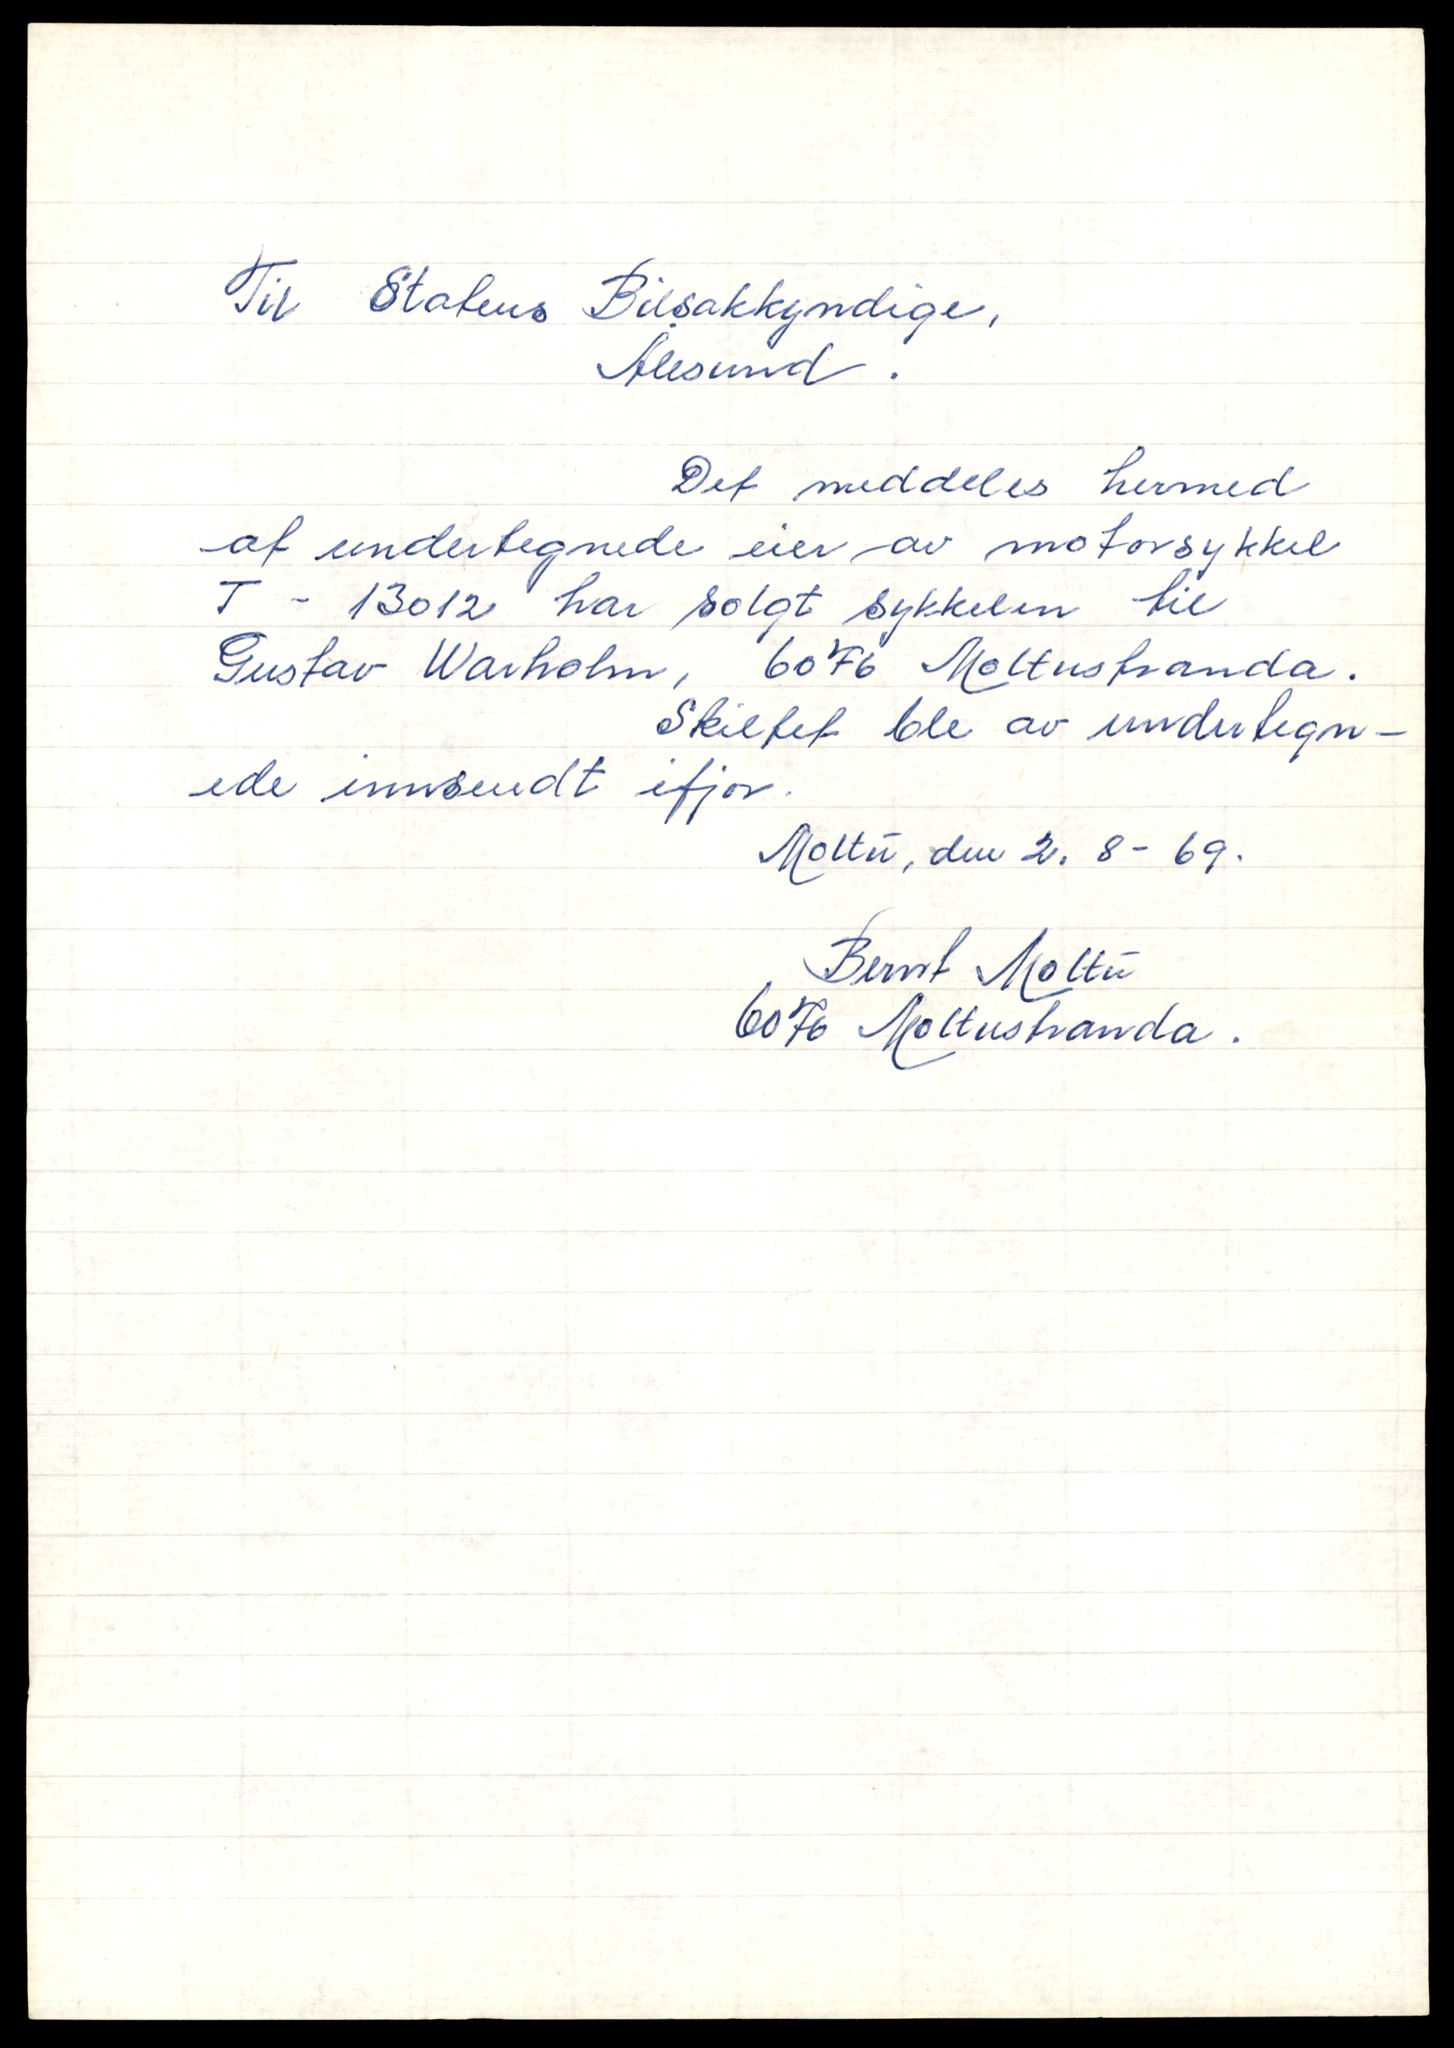 Til Statens Bilsakkyndige,
Ålesund.
Det meddeles hermed
at undertegnede eier av motorsykkel
T - 13012 har solgt sykkelen til
Gustav Warholm, 6076 Moltustranda.
Skiltet ble av undertegn-
ede innsendt ifjor.
Moltu, den 2. 8 - 69.
Bernt Moltu
6076 Moltustranda.